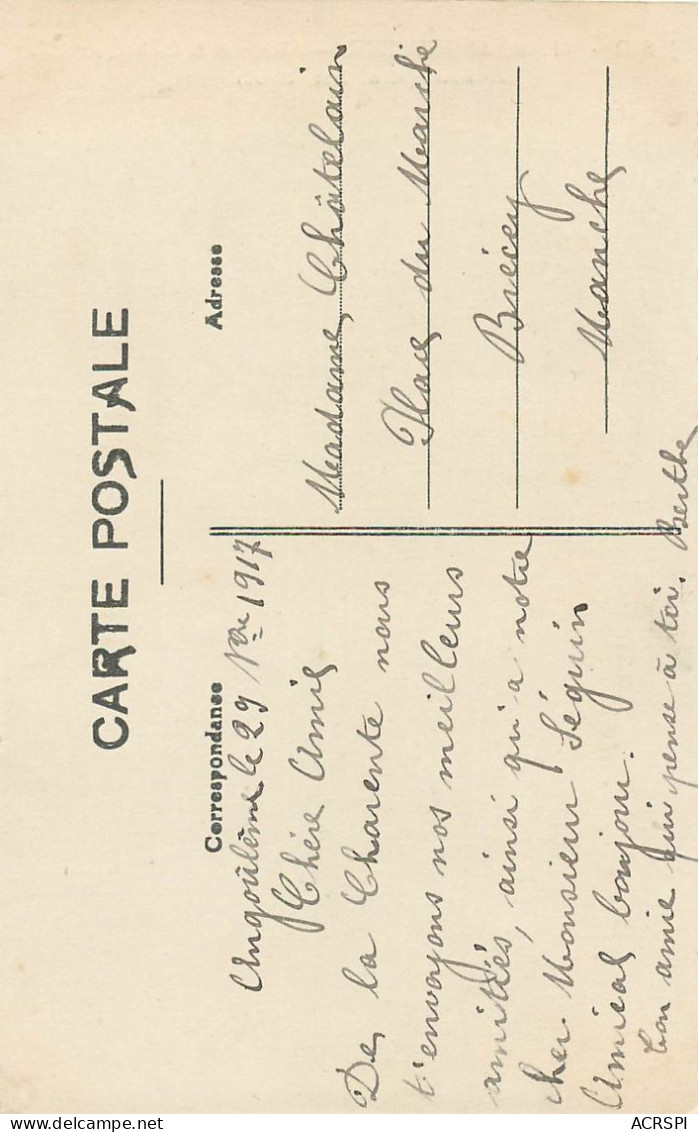 CARTE POSTALE
Correspondance
Angoulême le 29 Nbre 1917
Chère Amie
De la Charente nous
t'envoyons nos meilleurs
amitiés, ainsi qu'a notre
cher Monsieur Séguin
Amical bonjour.
Ton amie qui pense à toi. Berthe
Adresse
Madame Châtelain
Place du Marché
Brécey
Manche
ACRSPI